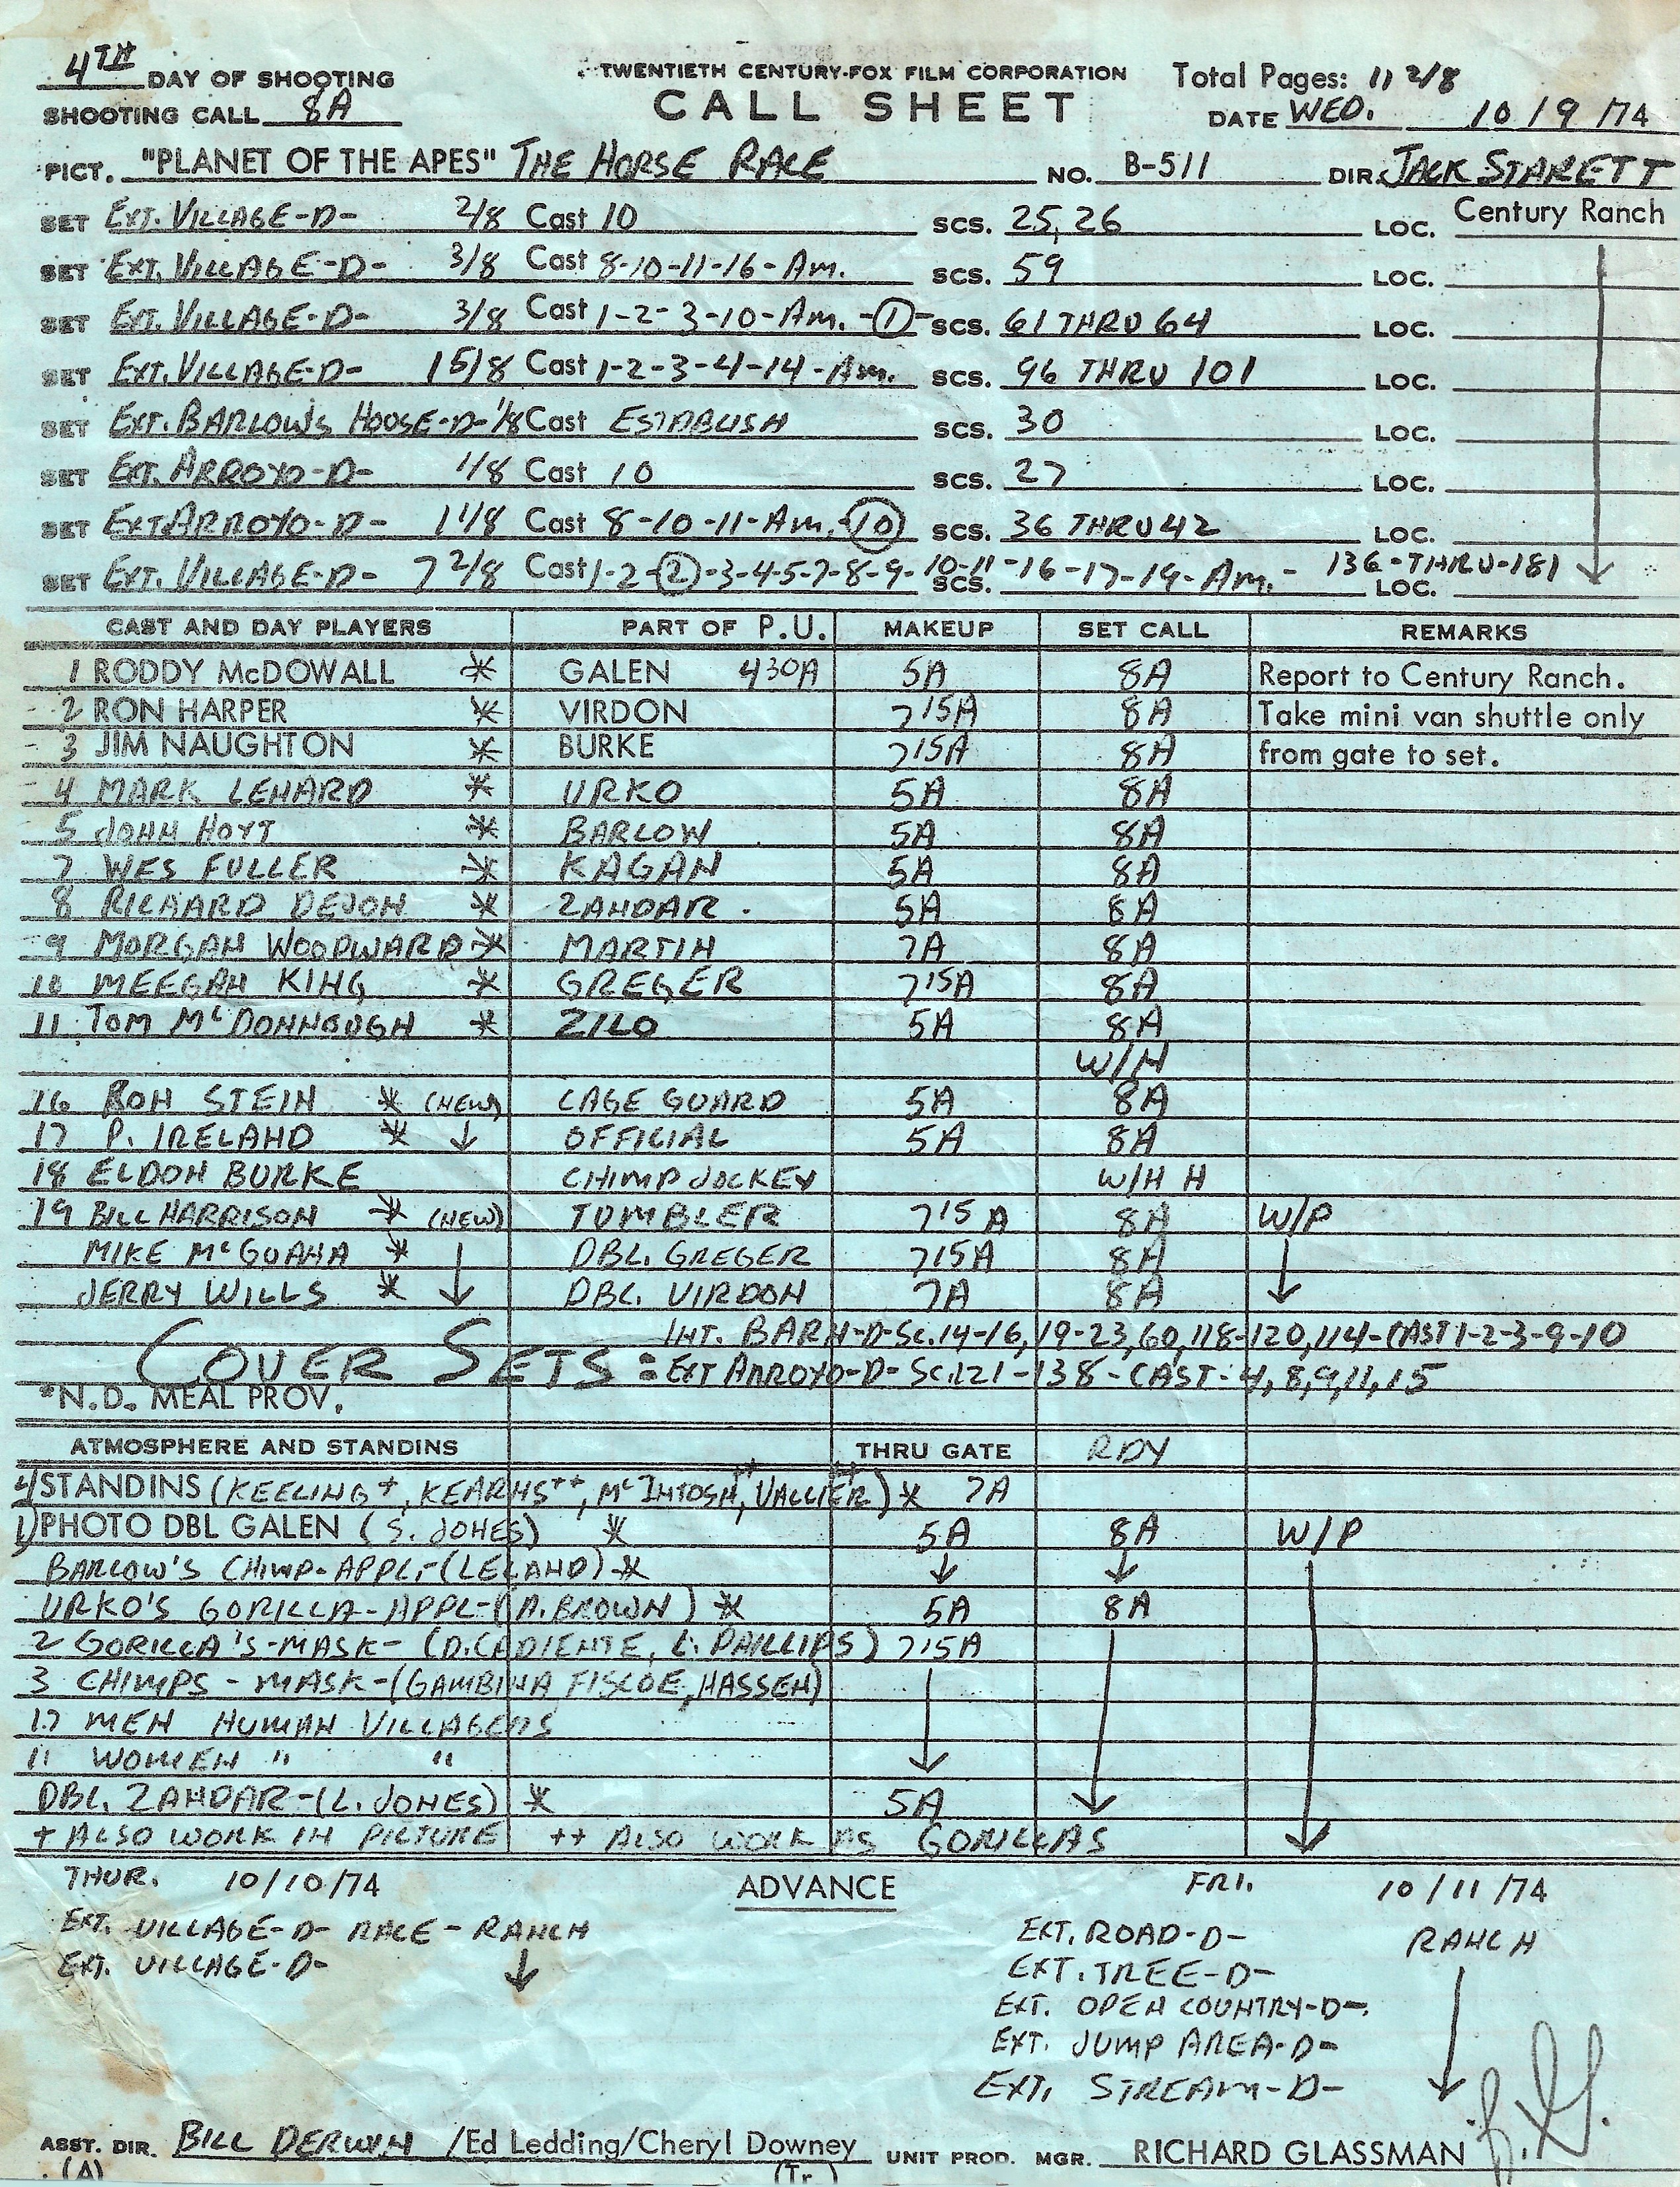 4TH DAY OF SHOOTING
SHOOTING CALL 8A
TWENTIETH CENTURY-FOX FILM CORPORATION
CALL SHEET
Total Pages: 11 2/8
DATE WED. 10/9/74
PICT. "PLANET OF THE APES" THE HORSE RACE NO. B-511 DIR. JACK STARETT
SET EXT. VILLAGE-D- 2/8 Cast 10 SCS. 25, 26 LOC. Century Ranch
SET EXT. VILLAGE-D- 3/8 Cast 8-10-11-16-Am. SCS. 59 LOC.
SET EXT. VILLAGE-D- 3/8 Cast 1-2-3-10-Am.-1- SCS. 61 THRU 64 LOC.
SET EXT. VILLAGE-D- 1 5/8 Cast 1-2-3-4-14-Am. SCS. 96 THRU 101 LOC.
SET EXT. BARLOW'S HOUSE-D- 1/8 Cast ESTABLISH SCS. 30 LOC.
SET EXT. ARROYO-D- 1/8 Cast 10 SCS. 27 LOC.
SET EXT ARROYO-D- 1 1/8 Cast 8-10-11-Am.-10 SCS. 36 THRU 42 LOC.
SET EXT. VILLAGE-D- 7 2/8 Cast 1-2-2-3-4-5-7-8-9-10-11-16-17-19-Am.- SCS. 136-THRU-181 LOC.
CAST AND DAY PLAYERS PART OF P.U. MAKEUP SET CALL REMARKS
1 RODDY McDOWALL * GALEN 430A 5A 8A Report to Century Ranch.
2 RON HARPER * VIRDON 715A 8A Take mini van shuttle only
3 JIM NAUGHTON * BURKE 715A 8A from gate to set.
4 MARK LENARD * URKO 5A 8A
5 JOHN HOYT * BARLOW 5A 8A
7 WES FULLER * KAGAN 5A 8A
8 RICHARD DEVON * ZANDAR . 5A 8A
9 MORGAN WOODWARD * MARTIN 7A 8A
10 MEEGAN KING * GREGER 715A 8A
11 TOM McDONNOUGH * ZILO 5A 8A
W/N
16 RON STEIN * (NEW) CAGE GUARD 5A 8A
17 P. IRELAND * ↓ OFFICIAL 5A 8A
18 ELDON BURKE CHIMP JOCKEY W/N H
19 BILL HARRISON * (NEW) TUMBLER 715A 8A W/P
MIKE McGUANA * DBL. GREGER 715A 8A
JERRY WILLS * DBL. VIRDON 7A 8A
COVER SETS: INT. BARN-D-Sc.14-16, 19-23, 60, 118-120, 114-CAST 1-2-3-9-10
EXT ARROYO-D-Sc.121-138-CAST-4, 8, 9, 11, 15
*N.D. MEAL PROV.
ATMOSPHERE AND STANDINS THRU GATE RDY
4) STANDINS (KEELING+, KEARNS++, McINTOSH++, VALLIER++) * 7A
1) PHOTO DBL GALEN (S. JONES) * 5A 8A W/P
BARLOW'S CHIMP-APPL.-(LELAND) * ↓ ↓
URKO'S GORILLA-APPL-(A. BROWN) * 5A 8A
2 GORILLA'S-MASK-(D. CADIENTE, L. PHILLIPS) 715A
3 CHIMPS-MASK-(GAMBINA FISCOE, HASSEN)
17 MEN HUMAN VILLAGERS
11 WOMEN " "
DBL. ZANDAR-(L. JONES) * 5A
+ ALSO WORK IN PICTURE ++ ALSO WORK AS GORILLAS
THUR. 10/10/74 ADVANCE FRI. 10/11/74
EXT. VILLAGE-D-RACE-RANCH EXT. ROAD-D- RANCH
EXT. VILLAGE-D- ↓ EXT. TREE-D-
EXT. OPEN COUNTRY-D-
EXT. JUMP AREA-D-
EXT. STREAM-D-
ASST. DIR. BILL DERWIN /Ed Ledding/Cheryl Downey UNIT PROD. MGR. RICHARD GLASSMAN R.G.
(A) (Tr.)